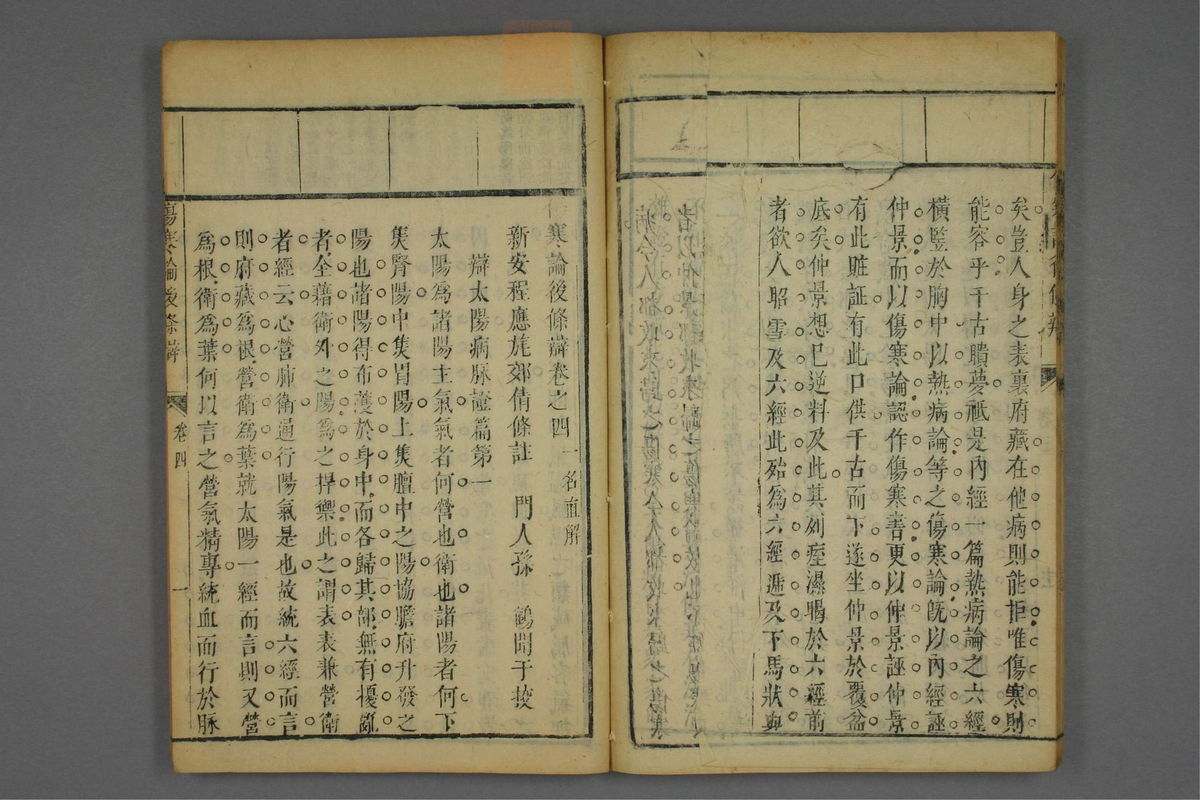 矣豈人身之表裏府藏在他病則能拒唯傷寒則
能容乎千古聵夢祇是內經一篇熱病論之六經
橫竪於胸中以熱病論等之傷寒論旣以內經誣
仲景而以傷寒論認作傷寒書更以仲景誣仲景
有此賍証有此口供千古而下遂坐仲景於覆盆
底矣仲景想已逆料及此其列痙濕暍於六經前
者欲人昭雪及六經此殆爲六經遞及下馬狀與
寒論後條辯卷之四 一名直解
新安程應旄郊倩條註 門人孫 鶴聞于按
辯太陽病脉證篇第一
太陽爲諸陽主氣氣者何營也衛也諸陽者何下
焦腎陽中焦胃陽上焦膻中之陽協膽府升發之
陽也諸陽得布護於身中而各歸其部無有擾亂
者全藉衛外之陽爲之捍禦此之謂表表兼營衛
者經云心營肺衛通行陽氣是也故統六經而言
則府藏爲根營衛爲葉就太陽一經而言則又營
爲根衛爲葉何以言之營氣精專統血而行於脉
傷寒論後條辯 卷四 一